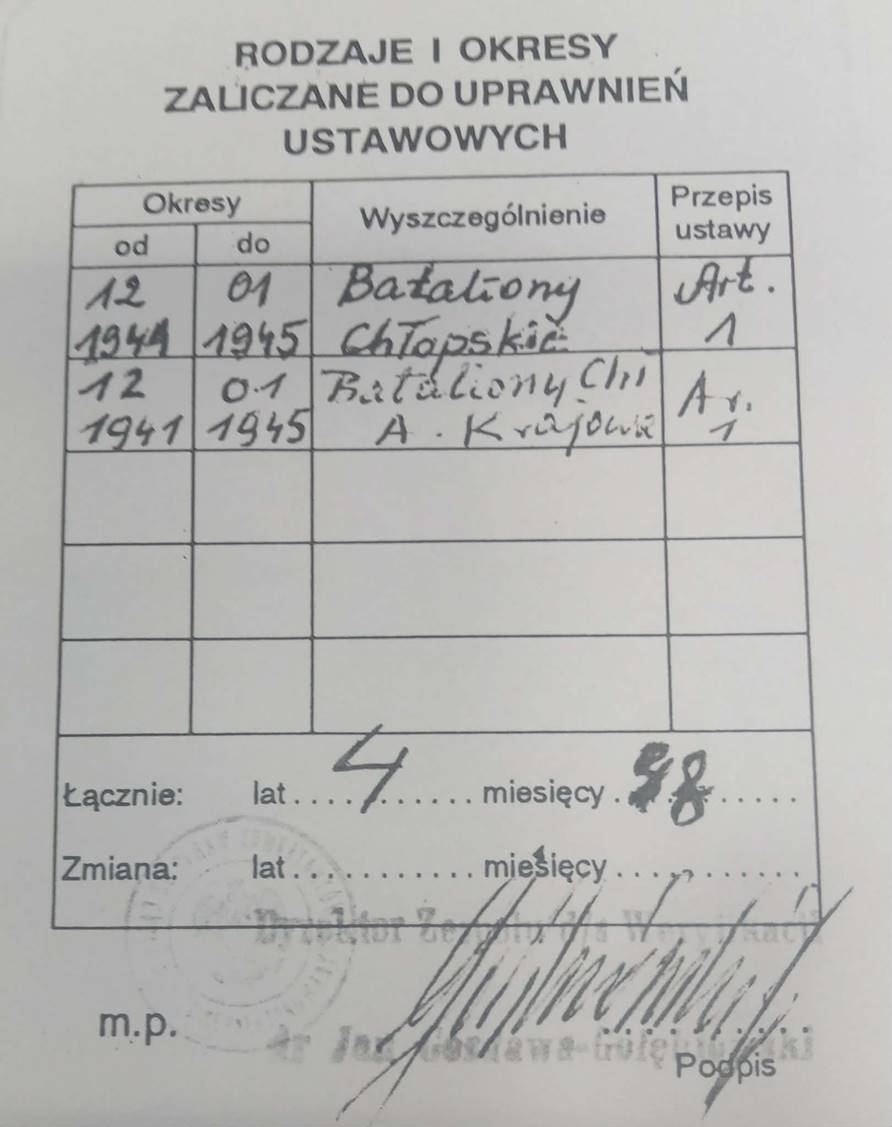 RODZAJE I OKRESY
ZALICZANE DO UPRAWNIEŃ
USTAWOWYCH
Okresy Wyszczególnienie Przepis ustawy
od do
12 01 Bataliony Art.
1941 1945 Chłopskie 1
12 01 Bataliony Chł Ar.
1941 1945 A. Krajowa 1
Łącznie: lat....4......... miesięcy ....8......
Zmiana: lat............. miesięcy.............
Dyrektor Zespołu d/s Weryfikacji
m.p.
dr Jan
Podpis